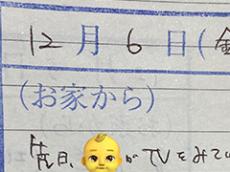 12月6日(金
(お家から)
日、👶がTVをみてい